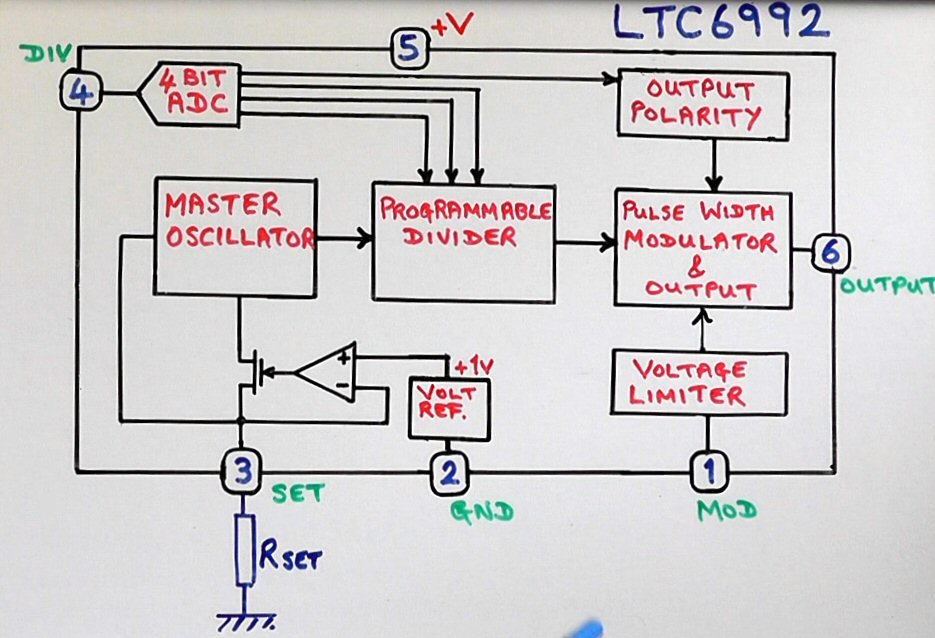 LTC6992
5
+V
DIV
4
4 BIT
ADC
OUTPUT
POLARITY
MASTER
OSCILLATOR
PROGRAMMABLE
DIVIDER
PULSE WIDTH
MODULATOR
&
OUTPUT
6
OUTPUT
+
-
+1V
VOLT
REF.
VOLTAGE
LIMITER
3
SET
2
GND
1
MOD
RSET